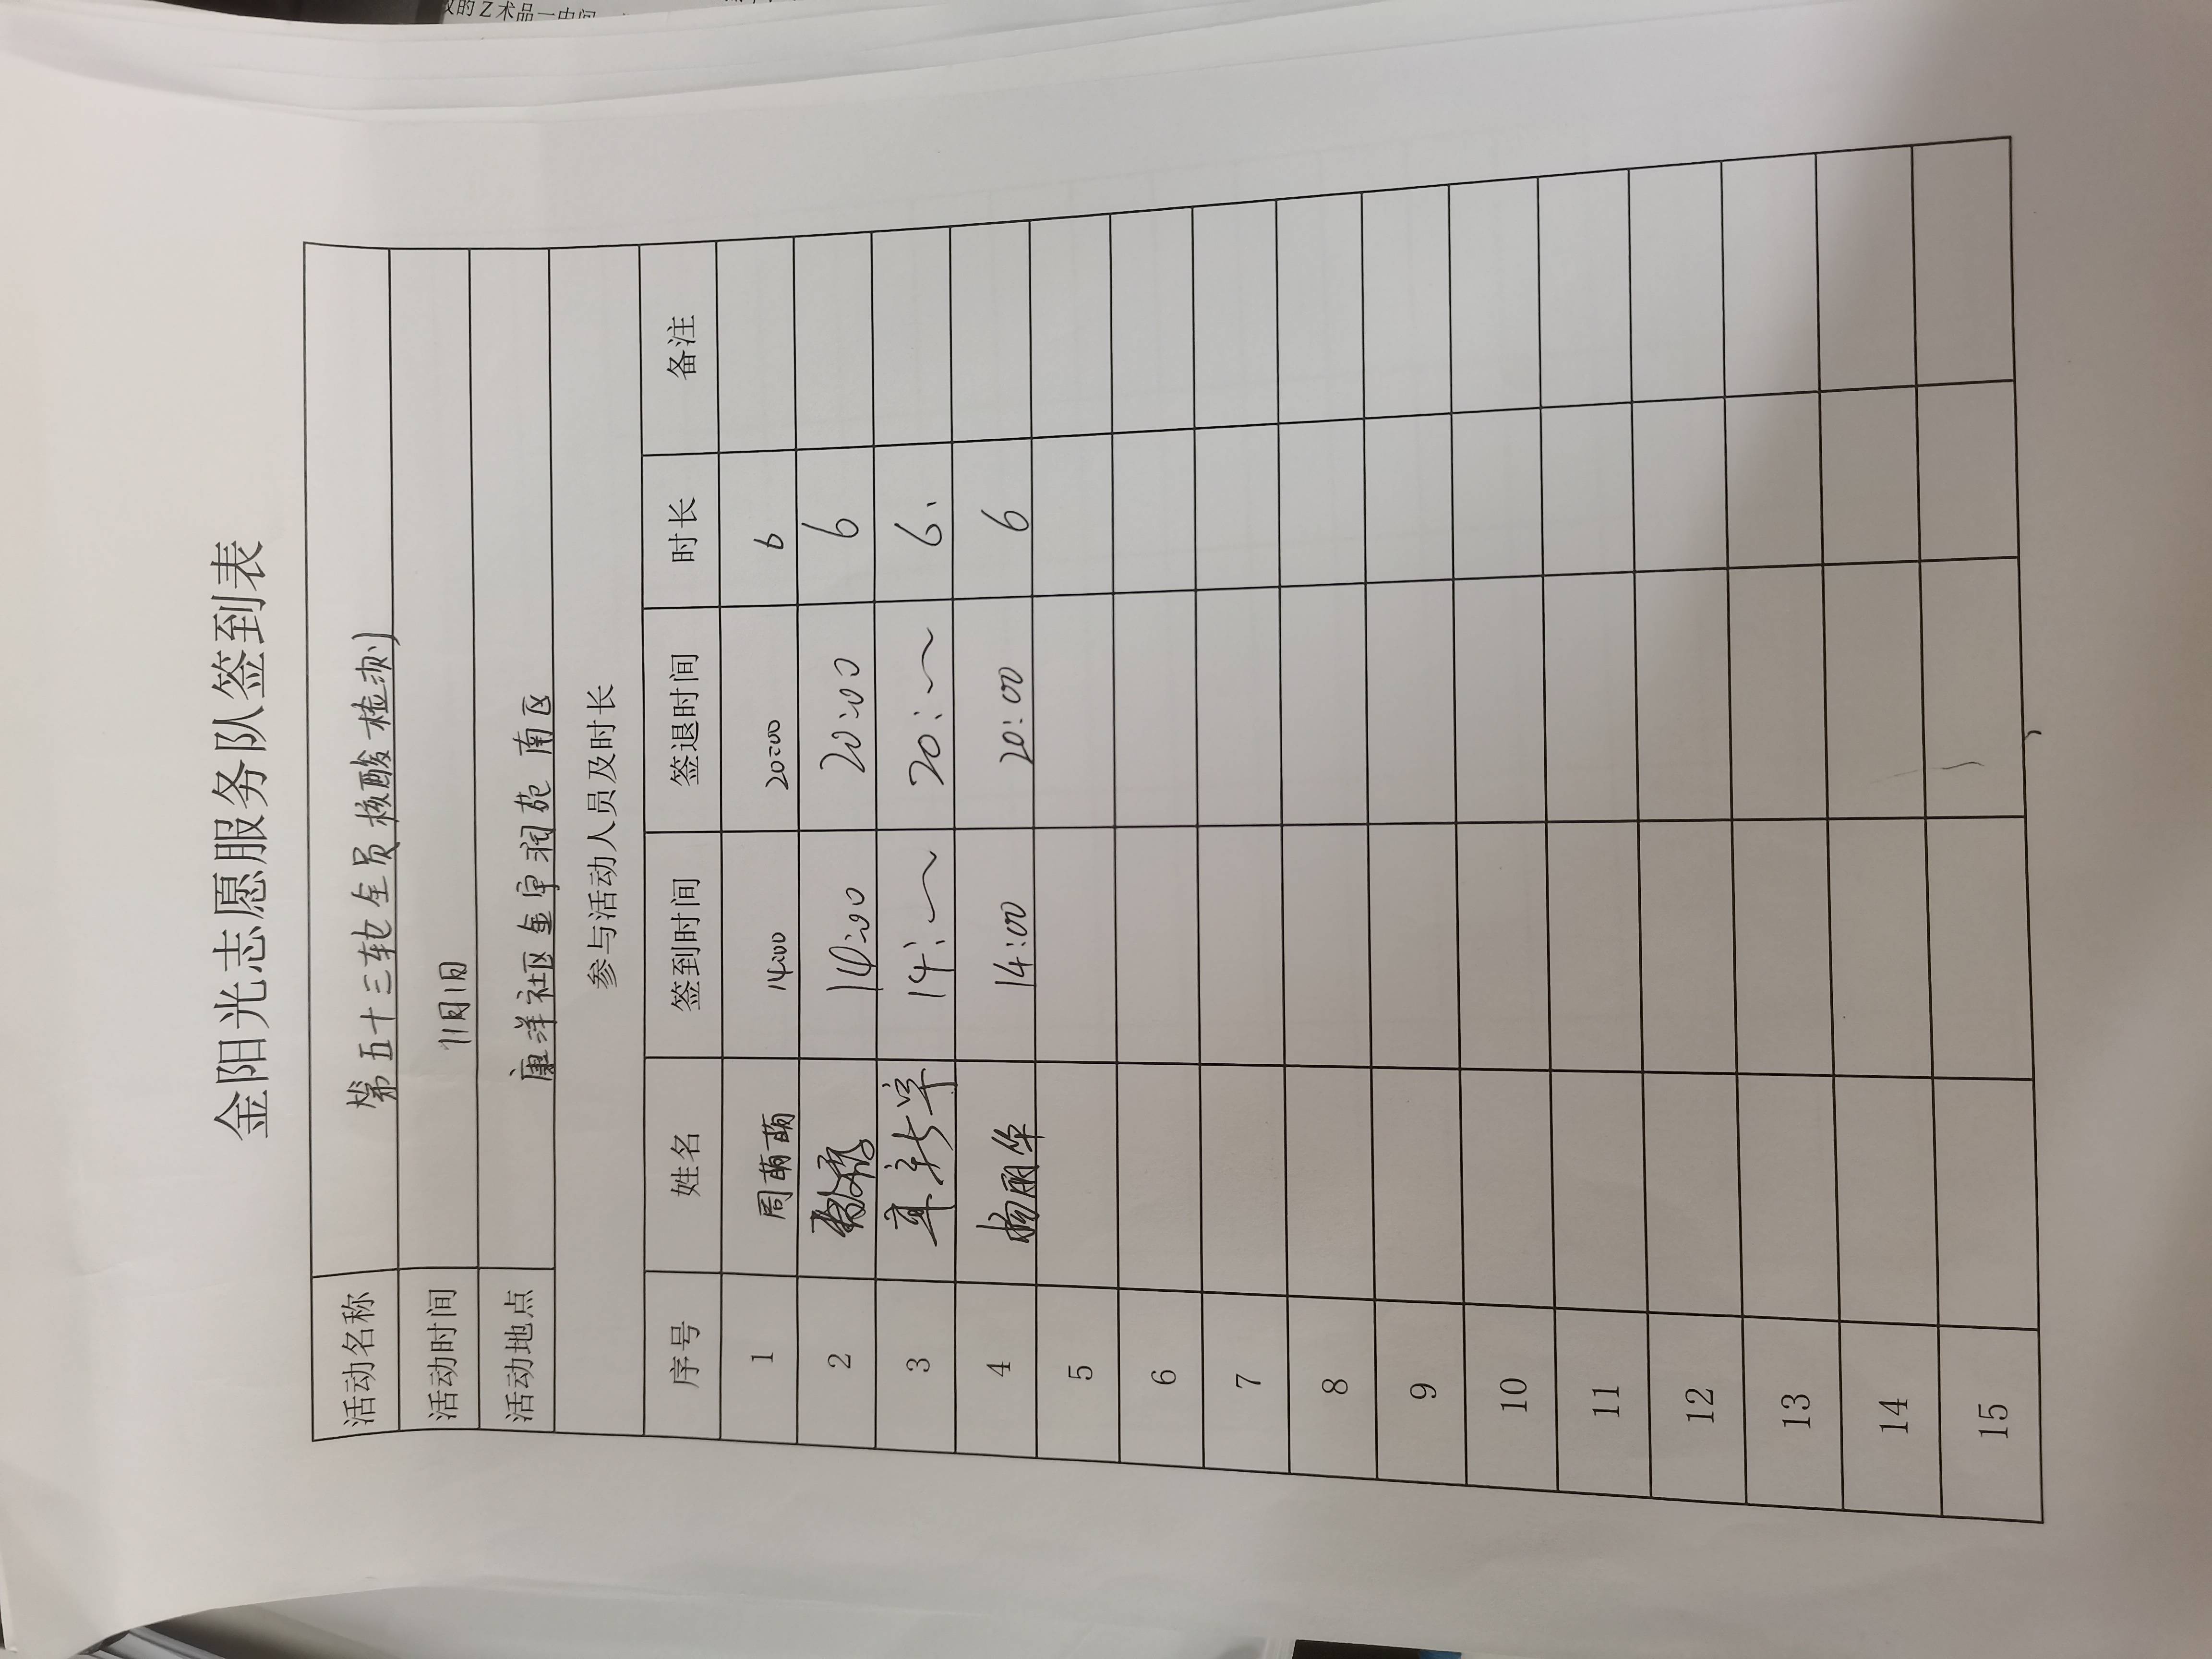 金阳光志愿服务队签到表
活动名称 第五十三轮全员核酸检测
活动时间 11月1日
活动地点 康洋社区金宇润苑南区
参与活动人员及时长
序号 姓名 签到时间 签退时间 时长 备注
1 周萌萌 14:00 20:00 6
2 14:00 20:00 6
3 14: 20: 6
4 杨丽华 14:00 20:00 6
5
6
7
8
9
10
11
12
13
14
15